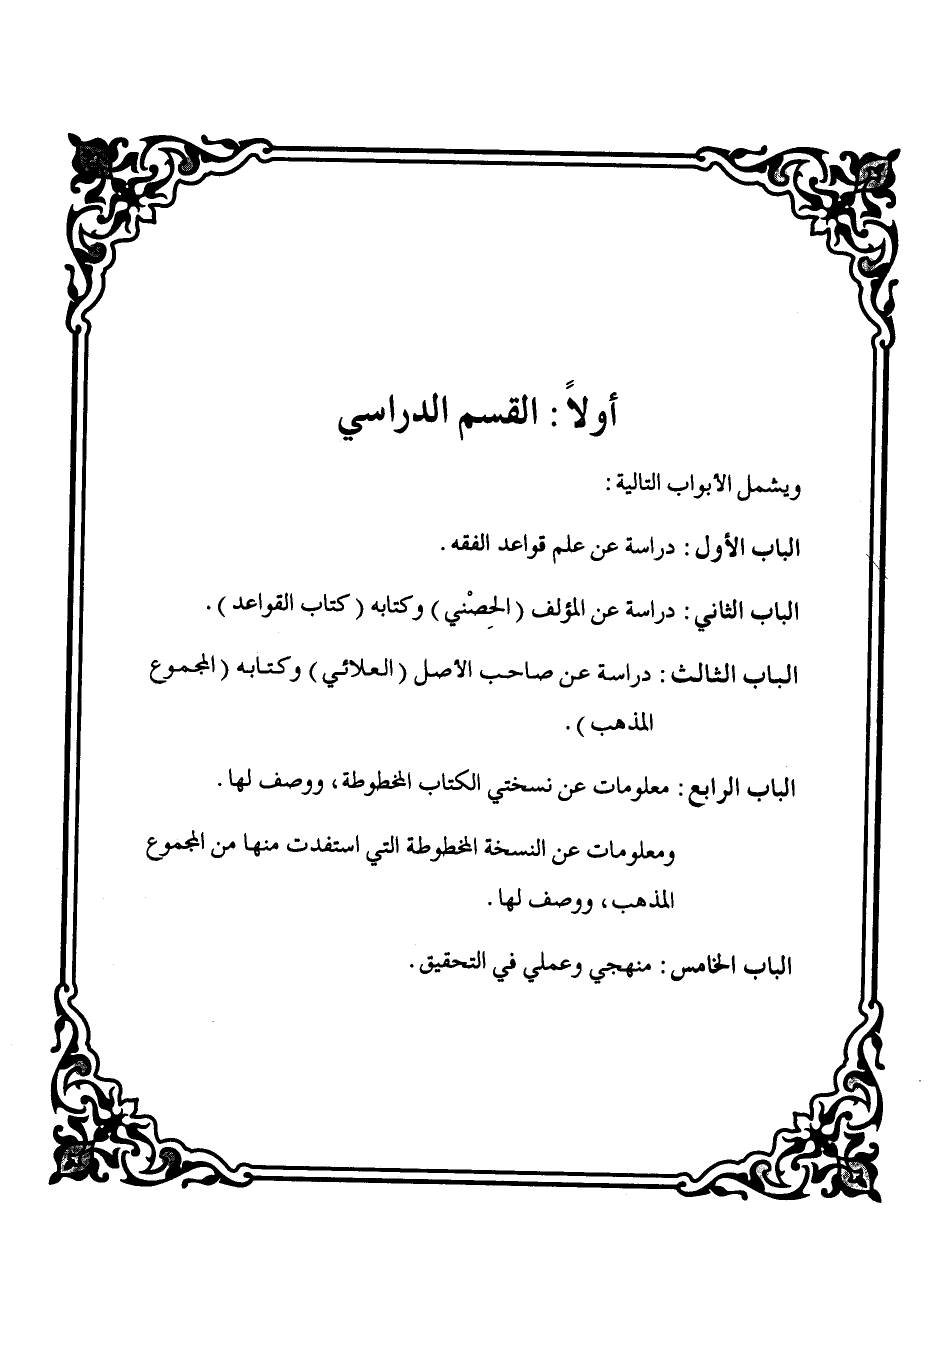 أولاً : القسم الدراسي
ويشمل الأبواب التالية :
الباب الأول : دراسة عن علم قواعد الفقه .
الباب الثاني : دراسة عن المؤلف ( الحِصْني ) وكتابه ( كتاب القواعد ) .
الباب الثالث : دراسة عن صاحب الأصل ( العلائي ) وكتابه ( المجموع
المذهب ) .
الباب الرابع : معلومات عن نسختي الكتاب المخطوطة ، ووصف لها .
ومعلومات عن النسخة المخطوطة التي استفدت منها من المجموع
المذهب ، ووصف لها .
الباب الخامس : منهجي وعملي في التحقيق .